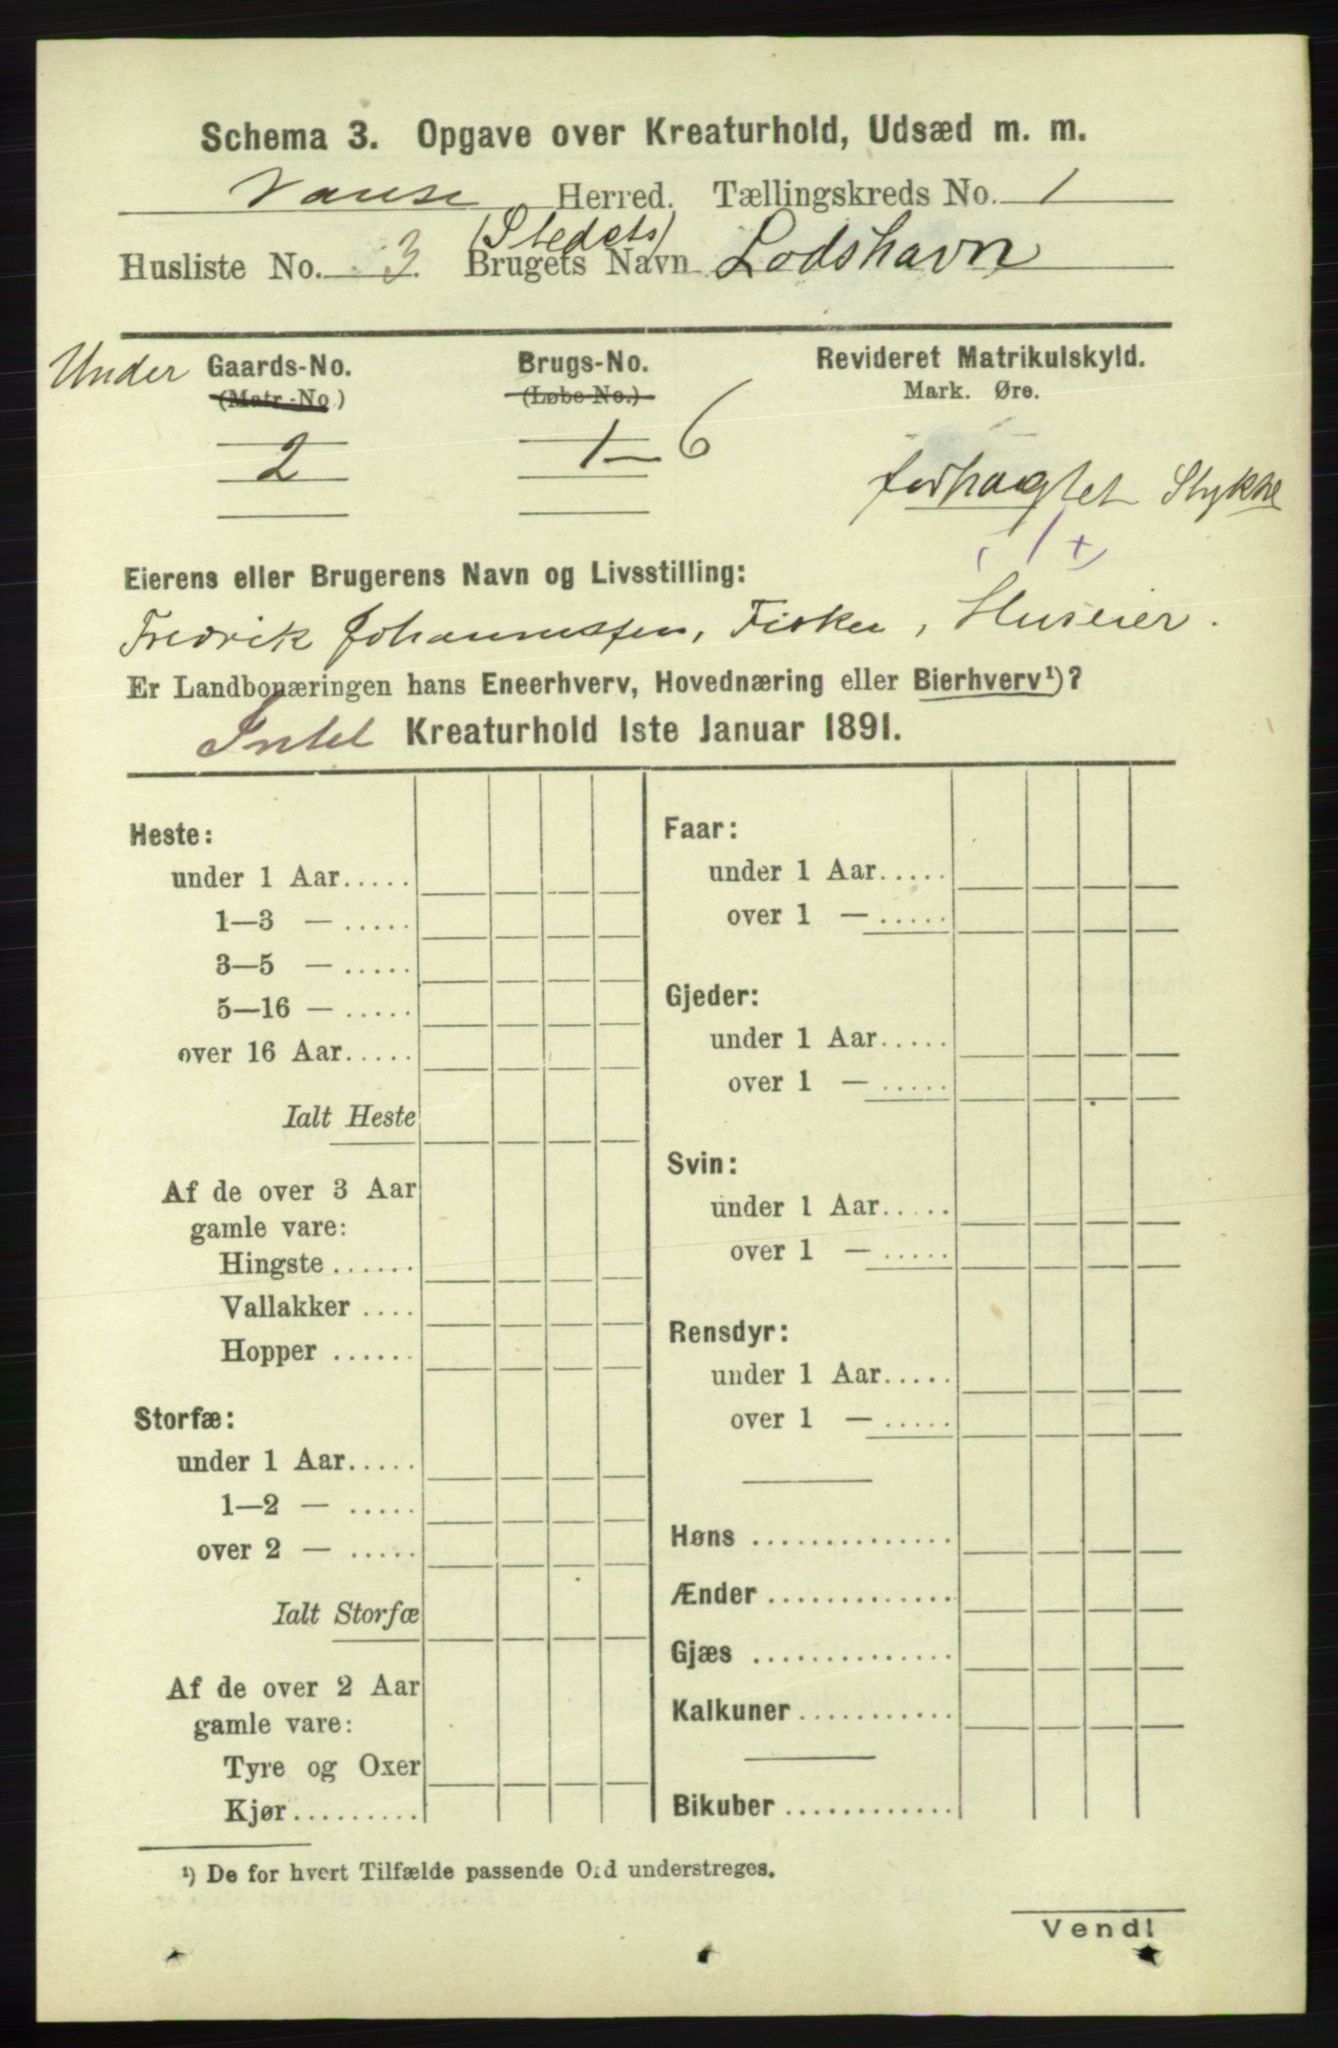 Schema 3. Opgave over Kreaturhold, Udsæd m. m.
Vanse Herred. Tællingskreds No. 1
(Stedets)
Husliste No. 3. Brugets Navn Lodshavn
Under Gaards-No. Brugs-No. Revideret Matrikulskyld.
(Matr.-No.) (Løbe-No.) Mark. Øre.
2 1-6
forpagtet Stykke
(1+)
Eierens eller Brugerens Navn og Livsstilling:
Fredrik Johannessen, Fisker, Huseier.
Er Landbonæringen hans Eneerhverv, Hovednæring eller Bierhverv¹)?
Intet Kreaturhold 1ste Januar 1891.
Heste:
under 1 Aar.....
1—3 — .....
3—5 — .....
5—16 — .....
over 16 Aar.....
Ialt Heste
Af de over 3 Aar
gamle vare:
Hingste ......
Vallakker ....
Hopper ......
Storfæ:
under 1 Aar.....
1—2 — .....
over 2 — .....
Ialt Storfæ
Af de over 2 Aar
gamle vare:
Tyre og Oxer
Kjør.........
Faar:
under 1 Aar.....
over 1 — .....
Gjeder:
under 1 Aar.....
over 1 — .....
Svin:
under 1 Aar.....
over 1 — .....
Rensdyr:
under 1 Aar.....
over 1 — .....
Høns ..............
Ænder .............
Gjæs ..............
Kalkuner...........
Bikuber ............
¹) De for hvert Tilfælde passende Ord understreges.
Vend!